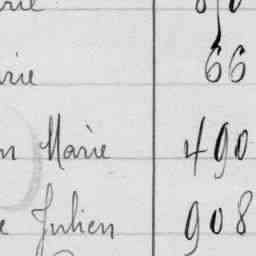 rie 66
n Marie 490
e Julien 908